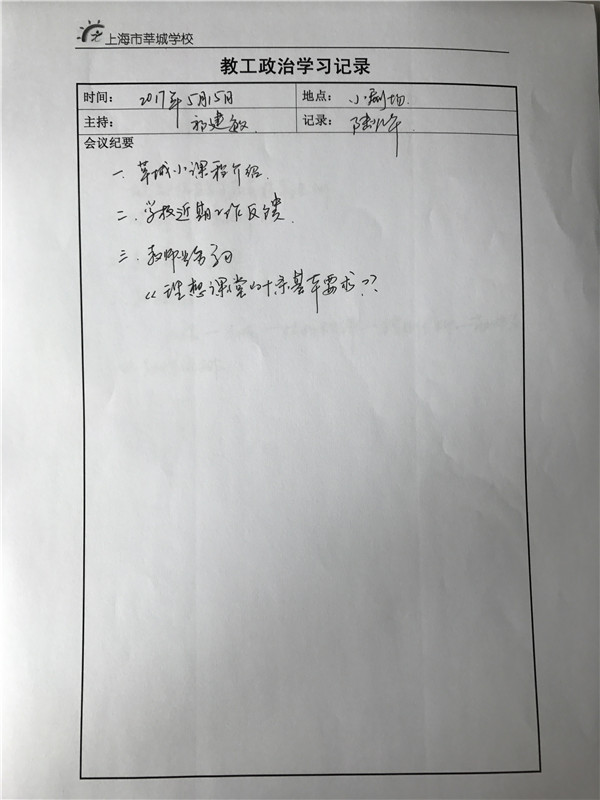 上海市莘城学校
教工政治学习记录
时间： 2017年5月15日 地点： 小剧场
主持： 祁建敏 记录：
会议纪要
一、莘城小课程介绍
二、学校近期工作反馈
三、教师学习
《理想课堂的十条基本要求》